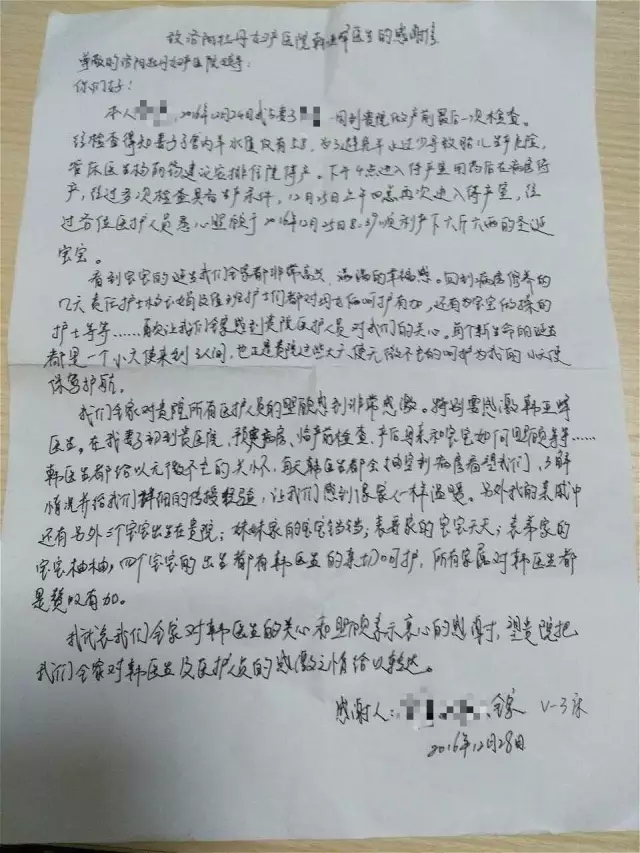 致洛阳牡丹妇产医院韩亚峰医生的感谢信
尊敬的洛阳牡丹妇产医院领导:
你们好!
本人 2016年12月24日我与妻子 一同到贵院做产前最后一次检查。
经检查得知妻子子宫内羊水量仅有58,为了避免羊水过少导致胎儿发生危险,
医生 建议安排住院待产。下午4点进入待产室用药后在病房待
产,经过多次检查具备生产条件,12月25日上午四点再次进入待产室,经
过各位医护人员悉心照顾于2016年12月25日8:39顺利产下六斤六两的圣诞
宝宝。
看到宝宝的诞生我们全家都非常高兴,满满的幸福感。回到病房休养的
几天责任护士 及值班护士们都对母女俩呵护有加,还有为宝宝做操的
护士等等……再次让我们全家感到贵院医护人员对我们的关心。每个新生命的诞生
都是一个小天使来到人间,也正是贵院这些大天使无微不至的呵护为我的小天使
保驾护航。
我们全家对贵院所有医护人员的照顾感到非常感激。特别要感激韩亚峰
医生。在我妻子初到贵医院、预定病房、临产前检查、产后母亲和宝宝如何照顾等等……
韩医生都给以无微不至的关怀,每天韩医生都会抽空到病房看望我们,了解
情况并给我们 的传授经验,让我们感到像家人一样温暖。另外我的亲戚中
还有另外三个宝宝出生在贵院;妹妹家的宝宝铛铛;表哥家的宝宝天天;表弟家的
宝宝柚柚,四个宝宝的出生都有韩医生的亲切呵护,所有家属对韩医生都
是赞叹有加。
我代表我们全家对韩医生的关心和照顾表示衷心的感谢,望贵院把
我们全家对韩医生及医护人员的感激之情给以转达。
感谢人: 、 全家 V-3床
2016年12月28日